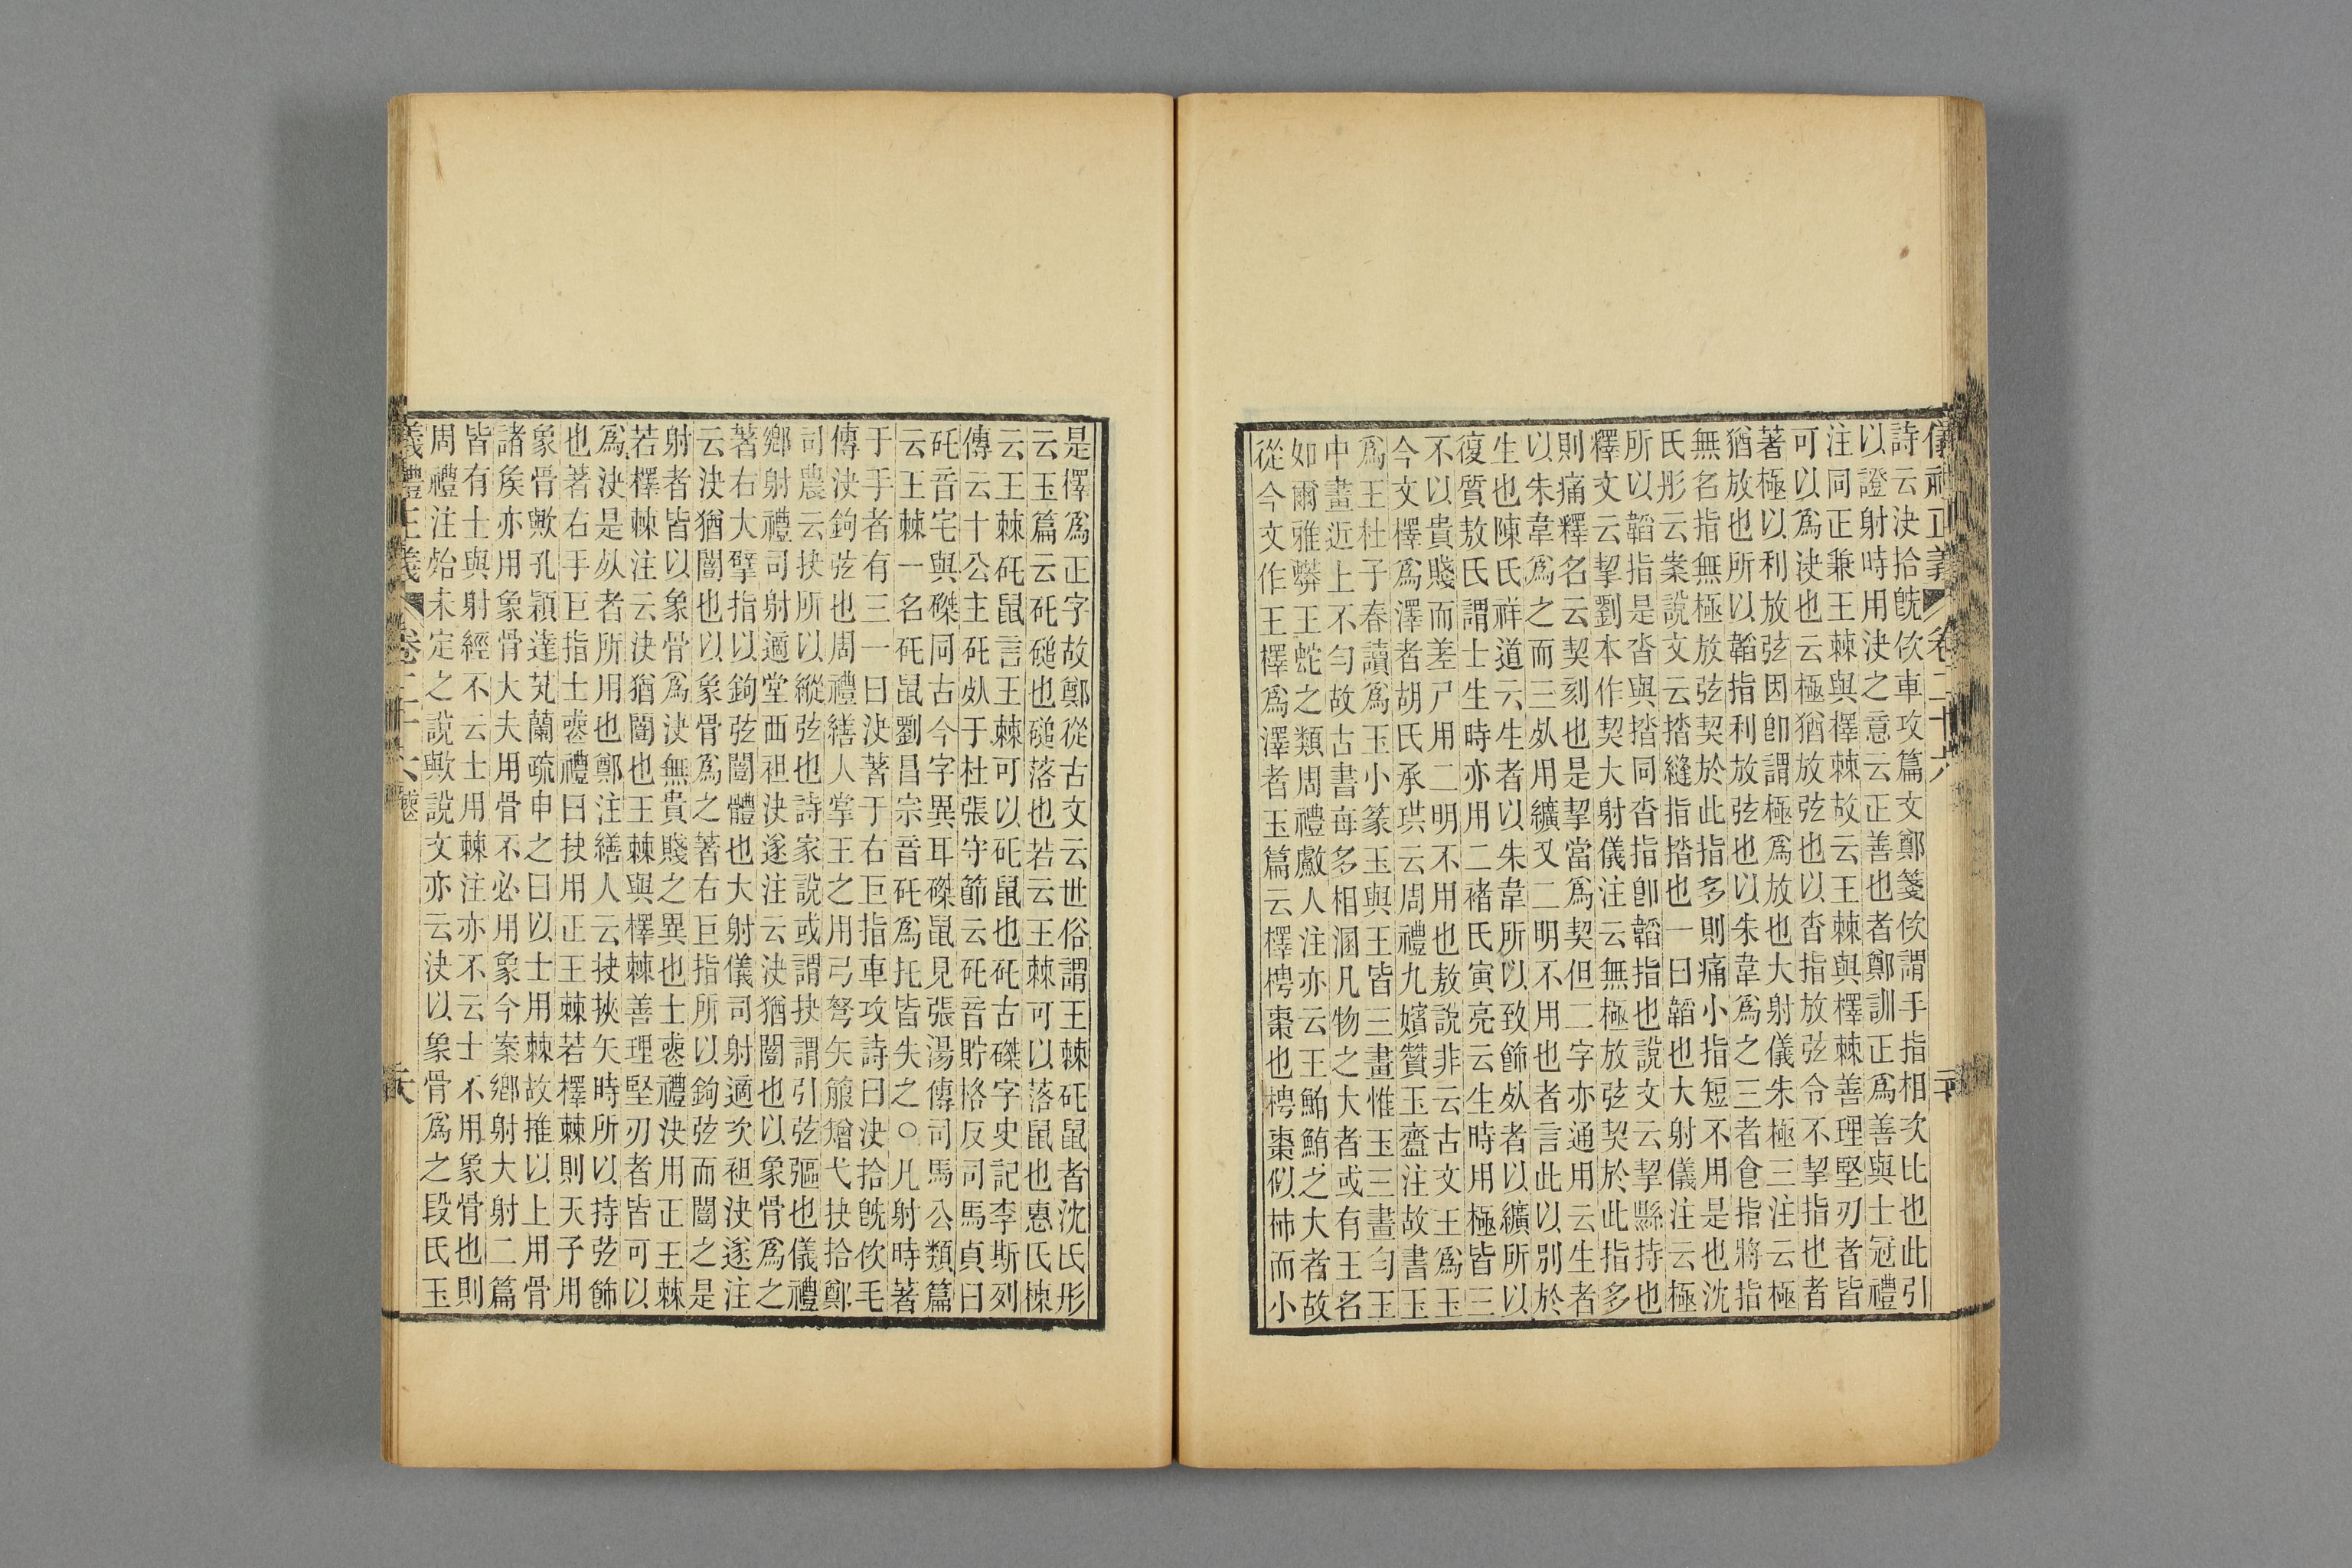 儀禮正義 卷二十六
詩云決拾旣佽車攻篇文鄭箋佽謂手指相次比也此引
以證射時用決之意云正善也者鄭訓正爲善與士冠禮
注同正兼王棘與檡棘故云王棘與檡棘善理堅刃者皆
可以爲決也云極猶放弦也以沓指放弦令不挈指也者
著極以利放弦因卽謂極爲放也大射儀朱極三注云極
猶放也所以韜指利放弦也以朱韋爲之三者食指將指
無名指無極放弦契於此指多則痛小指短不用是也沈
氏彤云案說文云㧺縫指㧺也一曰韜也大射儀注云極
所以韜指是沓與㧺同沓指卽韜指也說文云挈縣持也
釋文云挈劉本作契大射儀注云無極放弦契於此指多
則痛釋名云契刻也是挈當爲契但二字亦通用云生者
以朱韋爲之而三死用纊又二明不用也者言此以別於
生也陳氏祥道云生者以朱韋所以致飾死者以纊所以
復質敖氏謂士生時亦用二褚氏寅亮云生時用極皆三
不以貴賤而差尸用二明不用也敖說非云古文王爲玉
今文檡爲澤者胡氏承珙云周禮九嬪贊玉齍注故書玉
爲王杜子春讀爲玉小篆玉與王皆三畫惟玉三畫勻玉
中畫近上不勻故古書每多相溷凡物之大者或有王名
如爾雅蟒王蛇之類周禮人注亦云王鮪鮪之大者故
從今文作王檡爲澤者玉篇云檡梬棗也梬棗似柿而小
是檡爲正字故鄭從古文云世俗謂王棘矺鼠者沈氏彤
云玉篇云矺磓也磓落也若云王棘可以落鼠也惠氏棟
云王棘矺鼠言王棘可以矺鼠也矺古磔字史記李斯列
傳云十公主矺死于杜張守節云矺音貯格反司馬貞曰
矺音宅與磔同古今字異耳磔鼠見張湯傳司馬公類篇
云王棘一名矺鼠劉昌宗音矺爲托皆失之○凡射時著
于手者有三一曰決著于右巨指車攻詩曰決拾旣佽毛
傳決鉤弦也周禮繕人掌王之用弓弩矢箙矰弋抉拾鄭
司農云抉所以縱弦也詩家說或謂抉謂引弦彄也儀禮
鄉射禮司射適堂西袒決遂注云決猶闓也以象骨爲之
著右大擘指以鉤弦闓體也大射儀司射適次袒決遂注
云決猶闓也以象骨爲之著右巨指所以鉤弦而闓之是
射者皆以象骨爲決無貴賤之異也士喪禮決用正王棘
若檡棘注云決猶闓也王棘與檡棘善理堅刃者皆可以
爲決是死者所用也鄭注繕人云抉挾矢時所以持弦飾
也著右手巨指士喪禮曰抉用正王棘若檡棘則天子用
象骨歟孔穎達芄蘭疏申之曰以士用棘故推以上用骨
諸矦亦用象骨大夫用骨不必用象今案鄉射大射二篇
皆有士與射經不云士用棘注亦不云士不用象骨也則
周禮注始未定之說歟說文亦云決以象骨爲之段氏玉
儀禮正義 卷二十六 喪